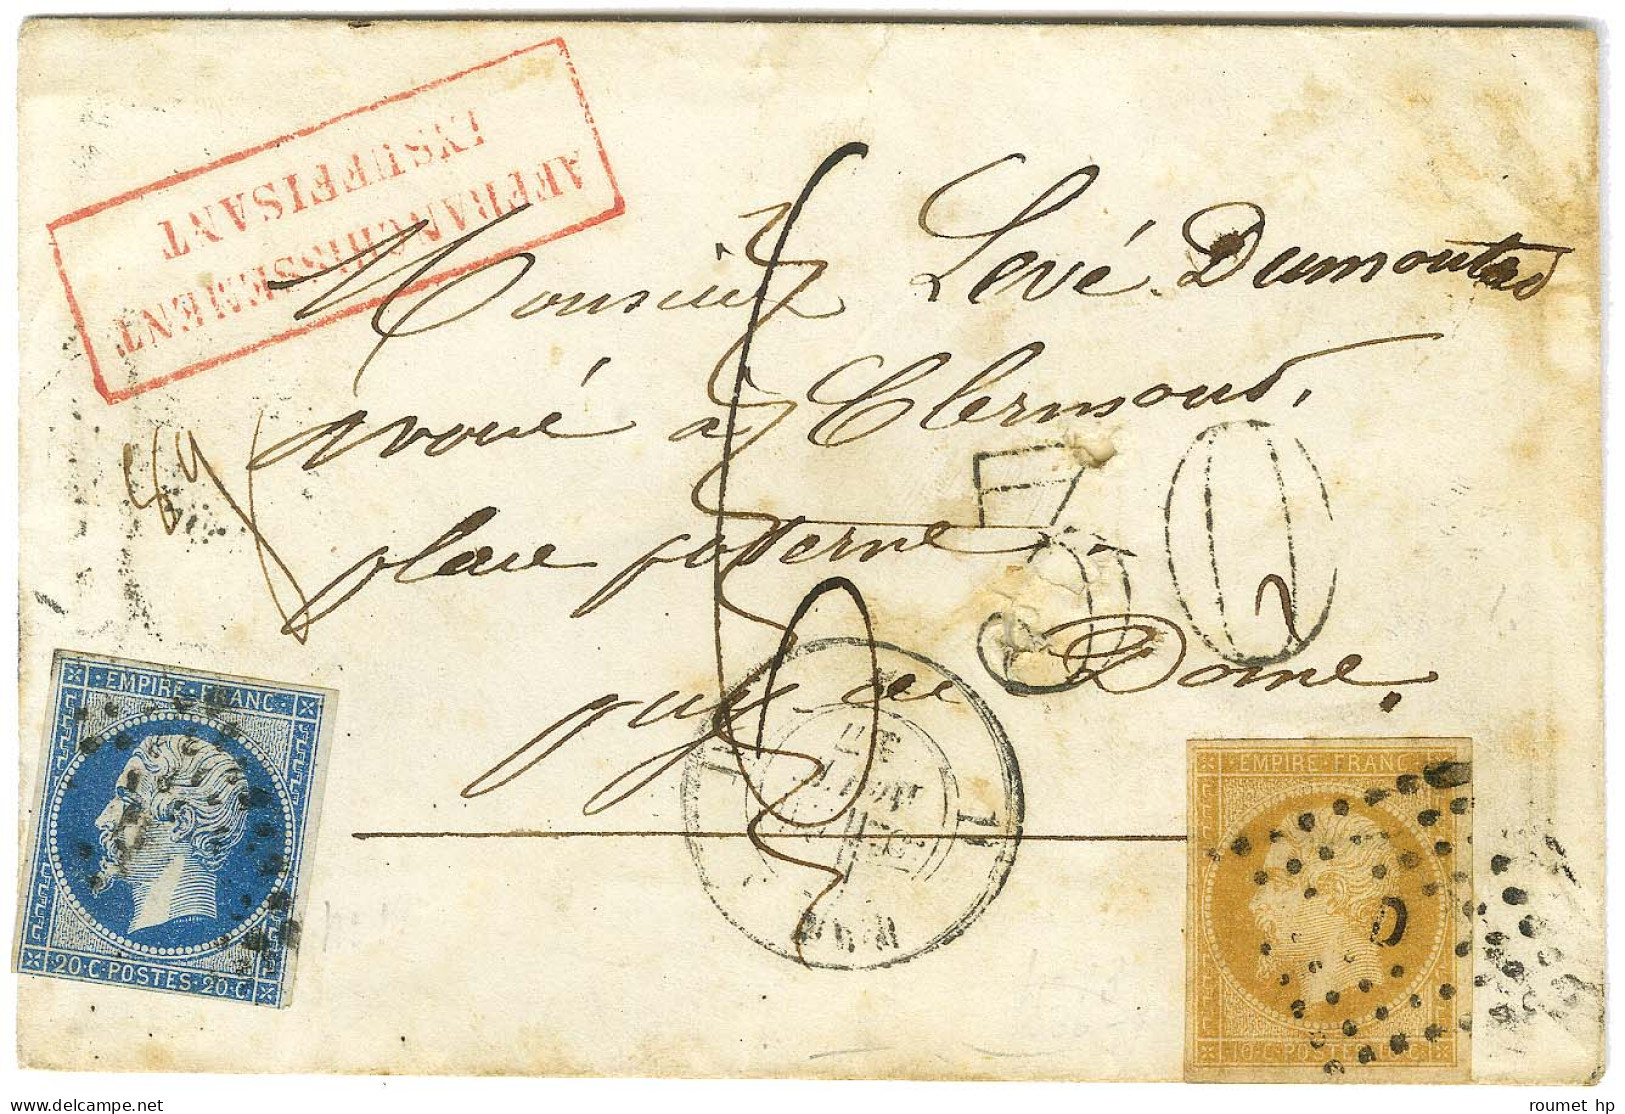 AFFRANCHISSEMENT
INSUFFISANT
Monsieur Levé Dumoutas
avoué à Clermont,
place poterne
puy de Dome.
30
EMPIRE·FRANC·
20·C·POSTES·20·C·
EMPIRE·FRANC
10·C·POSTES
D
roumet hp